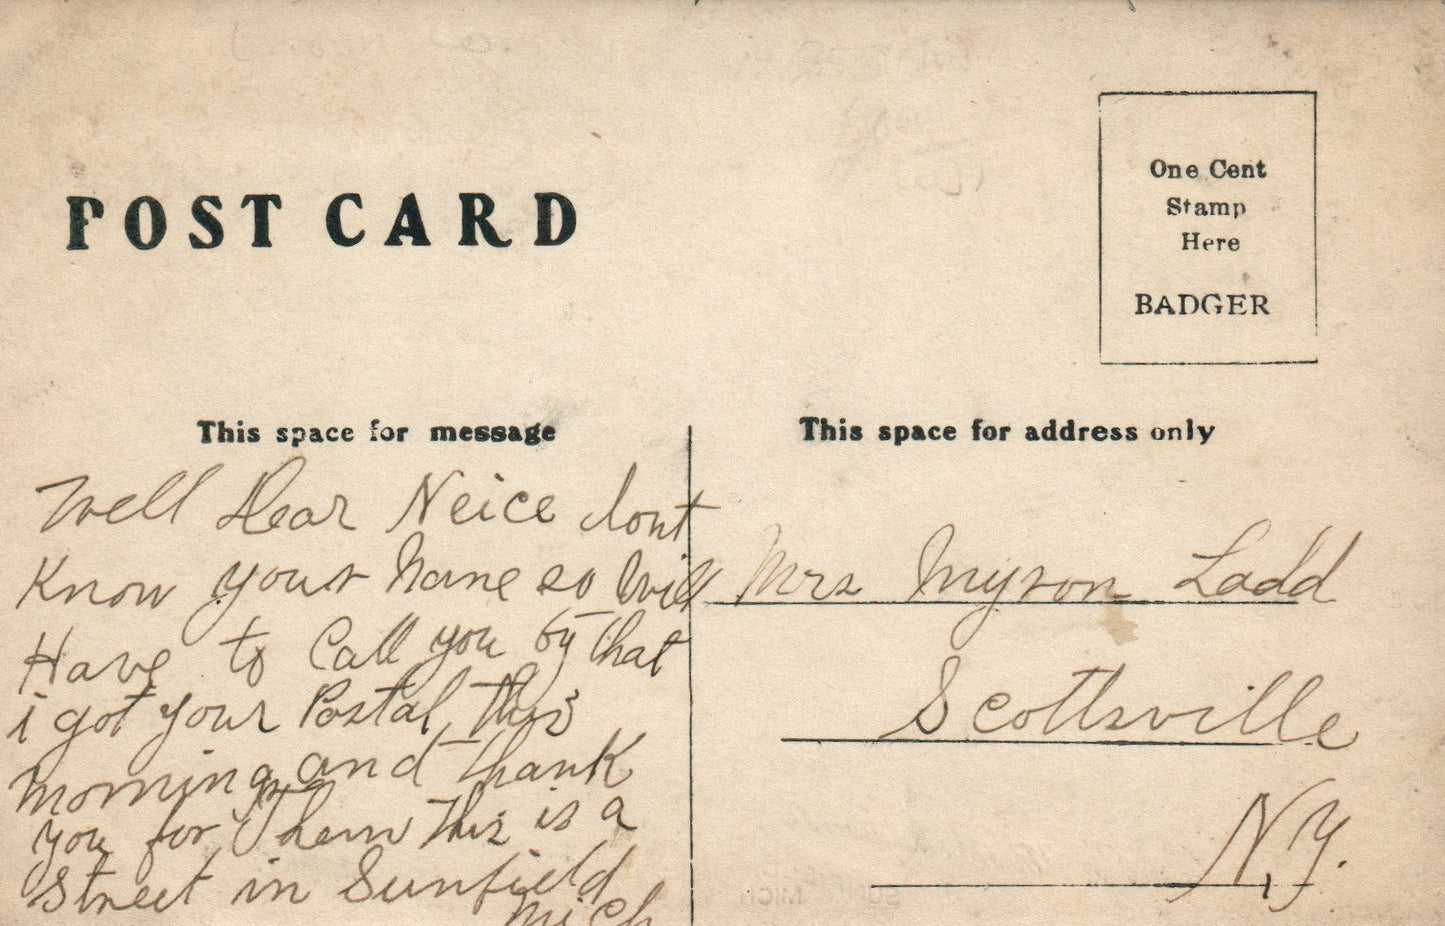 POST CARD
One Cent
Stamp
Here
BADGER
This space for message
Well Dear Neice dont
Know your Name so Will
Have to Call you by that
i got your Postal This
morning and thank
you for Them This is a
Street in Sunfield
Mich
This space for address only
Mrs Myron Ladd
Scottsville
N.Y.